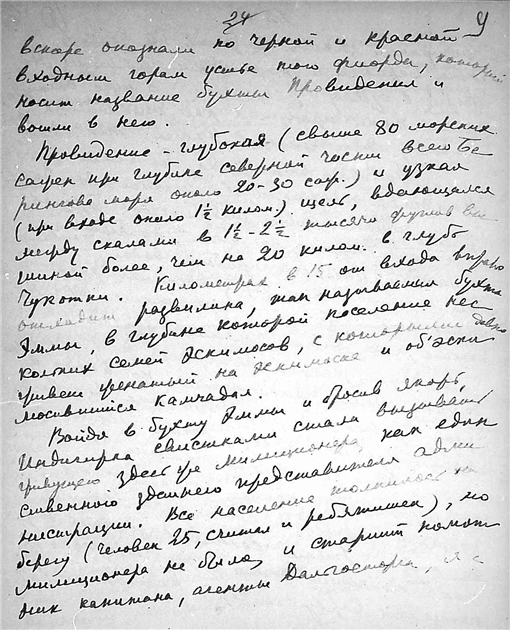 24
9
вскоре опознали по черной и красной
входным горам устье того фиорда, который
носит название бухты Провидения и
вошли в нее.
Провидение – глубокая (свыше 80 морских
сажен при глубине северной части всего Бе
рингово моря около 20-30 саж.) и узкая
(при входе около 1½ килом.) щель, вдающаяся
между скалами в 1½-2½ тысячи футов вы
шиной более, чем на 20 килом. в глубь
Чукотки. Километрах в 15 от входа вправо
отходит развилина, так называемая бухта
Эммы, в глубине которой поселение нес
кольких семей эскимосов, с которыми давно
живет женатый на эскимоске и объэски
мосившийся камчадал.
Войдя в бухту Эммы и бросив якорь,
Индигирка свистками стала вызывать
живущего здесь же милиционера, как един
ственного здешнего представителя адми
нистрации. Все население толпилось на
берегу (человек 25, считая и ребятишек), но
милиционера не было, и старший помощ
ник капитана, агенты Дальгосторга, я с